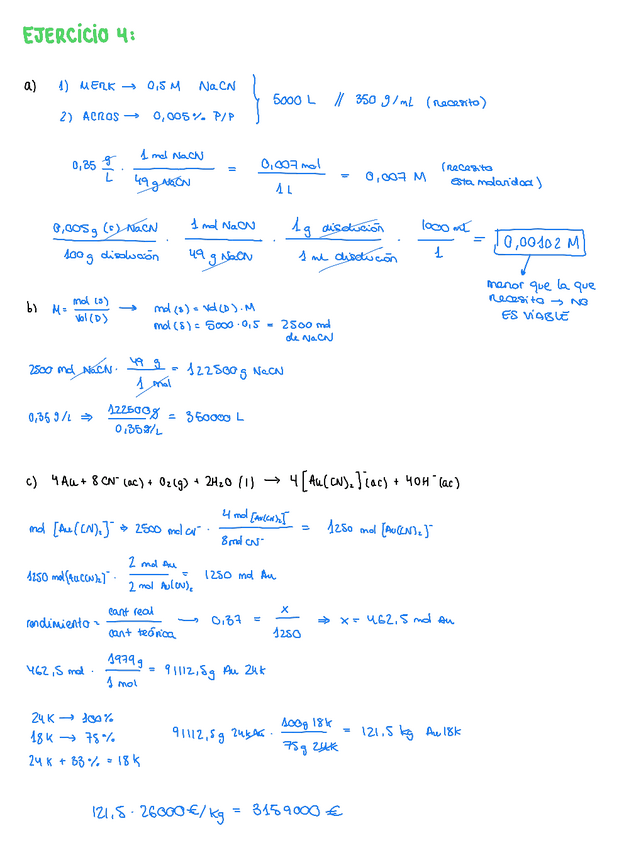 EJERCICIO 4:
a) 1) MERK → 0,5 M NaCN
2) ACROS → 0,005 % P/P
5000 L // 350 g/mL (necesito)
0,35 g/L · 1 mol NaCN / 49 g NaCN = 0,007 mol / 1 L = 0,007 M (necesito esta molaridad)
0,005 g (s) NaCN / 100 g disolución · 1 mol NaCN / 49 g NaCN · 1 g disolución / 1 mL disolución · 1000 mL / 1 = 0,00102 M
menor que la que
necesito → NO
ES VIABLE
b) M = mol (s) / Vol (D) → mol (s) = Vol (D) · M
mol (s) = 5000 · 0,5 = 2500 mol
de NaCN
2500 mol NaCN · 49 g / 1 mol = 122500 g NaCN
0,35 g/L ⇒ 122500 g / 0,35 g/L = 350000 L
c) 4 Au + 8 CN⁻ (ac) + O₂ (g) + 2H₂O (l) → 4 [Au(CN)₂]⁻ (ac) + 4OH⁻ (ac)
mol [Au(CN)₂]⁻ → 2500 mol CN⁻ · 4 mol [Au(CN)₂]⁻ / 8 mol CN⁻ = 1250 mol [Au(CN)₂]⁻
1250 mol [Au(CN)₂]⁻ · 2 mol Au / 2 mol Au(CN)₂ = 1250 mol Au
rendimiento = cant real / cant teórica → 0,37 = x / 1250 ⇒ x = 462,5 mol Au
462,5 mol · 1979 g / 1 mol = 91112,5 g Au 24K
24K → 100%
18K → 75%
24K + 33% = 18K
91112,5 g 24K Au · 100 g 18K / 75 g 24K = 121,5 kg Au 18K
121,5 · 26000 €/kg = 3159000 €